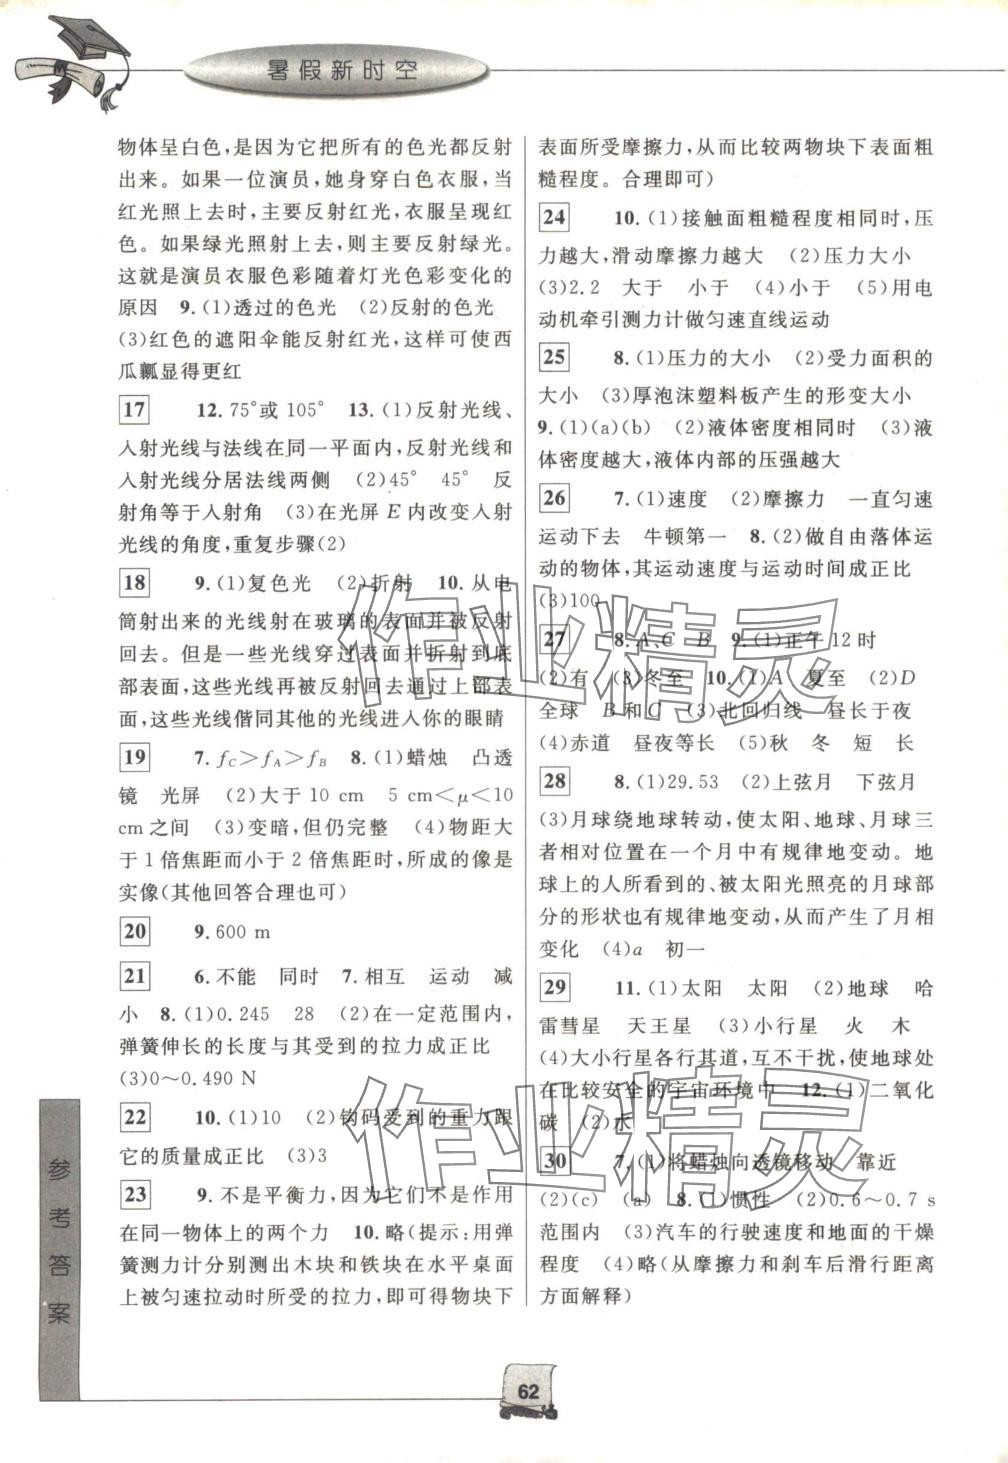 暑假新时空
物体呈白色,是因为它把所有的色光都反射
出来。如果一位演员,她身穿白色衣服,当
红光照上去时,主要反射红光,衣服呈现红
色。如果绿光照射上去,则主要反射绿光。
这就是演员衣服色彩随着灯光色彩变化的
原因 9.(1)透过的色光 (2)反射的色光
(3)红色的遮阳伞能反射红光,这样可使西
瓜瓤显得更红
17 12.75°或 105° 13.(1)反射光线、
入射光线与法线在同一平面内,反射光线和
入射光线分居法线两侧 (2)45° 45° 反
射角等于入射角 (3)在光屏 E 内改变入射
光线的角度,重复步骤(2)
18 9.(1)复色光 (2)折射 10.从电
筒射出来的光线射在玻璃的表面并被反射
回去。但是一些光线穿过表面并折射到底
部表面,这些光线再被反射回去通过上部表
面,这些光线偕同其他的光线进入你的眼睛
19 7.f_C>f_A>f_B 8.(1)蜡烛 凸透
镜 光屏 (2)大于 10 cm 5 cm<μ<10
cm之间 (3)变暗,但仍完整 (4)物距大
于 1 倍焦距而小于 2 倍焦距时,所成的像是
实像(其他回答合理也可)
20 9.600 m
21 6.不能 同时 7.相互 运动 减
小 8.(1)0.245 28 (2)在一定范围内,
弹簧伸长的长度与其受到的拉力成正比
(3)0～0.490 N
22 10.(1)10 (2)钩码受到的重力跟
它的质量成正比 (3)3
23 9.不是平衡力,因为它们不是作用
在同一物体上的两个力 10.略(提示:用弹
簧测力计分别测出木块和铁块在水平桌面
上被匀速拉动时所受的拉力,即可得物块下
表面所受摩擦力,从而比较两物块下表面粗
糙程度。合理即可)
24 10.(1)接触面粗糙程度相同时,压
力越大,滑动摩擦力越大 (2)压力大小
(3)2.2 大于 小于 (4)小于 (5)用电
动机牵引测力计做匀速直线运动
25 8.(1)压力的大小 (2)受力面积的
大小 (3)厚泡沫塑料板产生的形变大小
9.(1)(a)(b) (2)液体密度相同时 (3)液
体密度越大,液体内部的压强越大
26 7.(1)速度 (2)摩擦力 一直匀速
运动下去 牛顿第一 8.(2)做自由落体运
动的物体,其运动速度与运动时间成正比
(3)100
27 8.A、C B 9.(1)正午 12 时
(2)有 (3)冬至 10.(1)A 夏至 (2)D
全球 B 和 C (3)北回归线 昼长于夜
(4)赤道 昼夜等长 (5)秋 冬 短 长
28 8.(1)29.53 (2)上弦月 下弦月
(3)月球绕地球转动,使太阳、地球、月球三
者相对位置在一个月中有规律地变动。地
球上的人所看到的、被太阳光照亮的月球部
分的形状也有规律地变动,从而产生了月相
变化 (4)a 初一
29 11.(1)太阳 太阳 (2)地球 哈
雷彗星 天王星 (3)小行星 火 木
(4)大小行星各行其道,互不干扰,使地球处
在比较安全的宇宙环境中 12.(1)二氧化
碳 (2)水
30 7.(1)将蜡烛向透镜移动 靠近
(2)(c) (a) 8.(1)惯性 (2)0.6～0.7 s
范围内 (3)汽车的行驶速度和地面的干燥
程度 (4)略(从摩擦力和刹车后滑行距离
方面解释)
作业精灵
作业精灵
参考答案
62